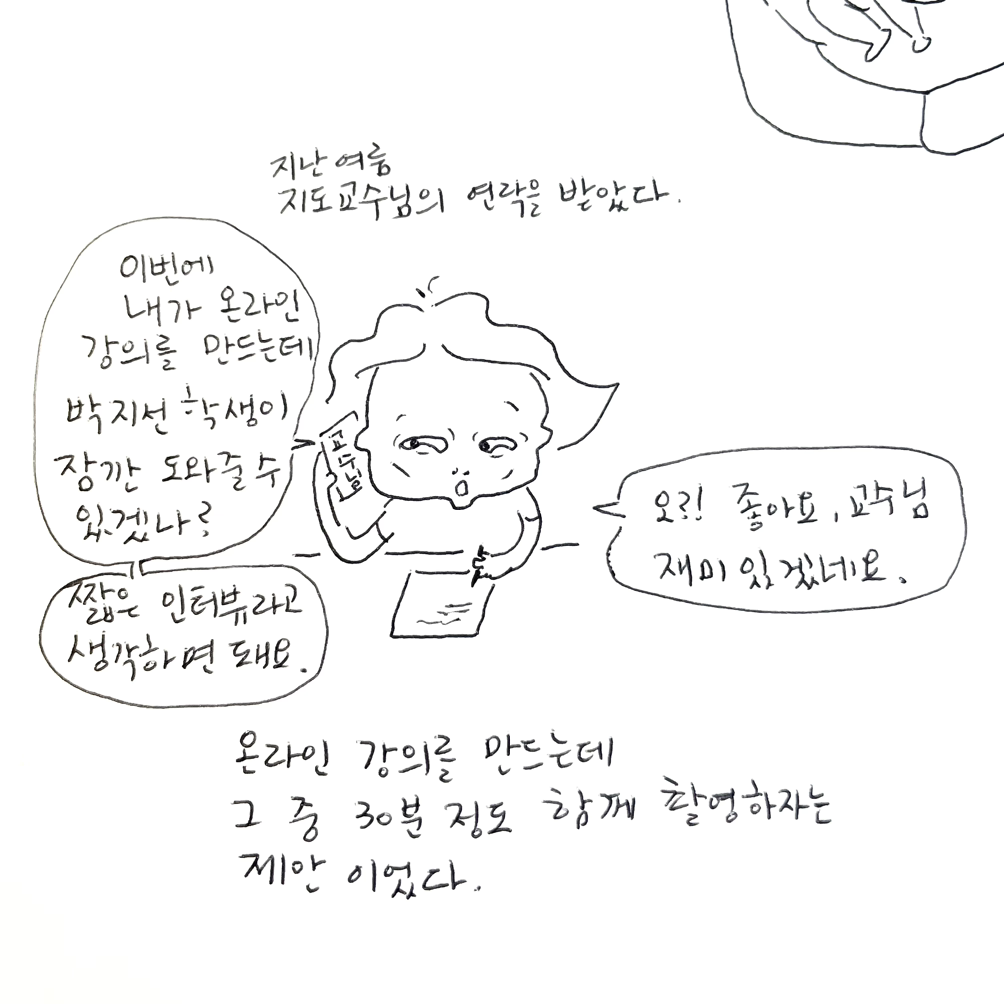 지난 여름
지도교수님의 연락을 받았다.
이번에
내가 온라인
강의를 만드는데
박지선 학생이
잠깐 도와줄 수
있겠나?
교수님
짧은 인터뷰라고
생각하면 돼요.
오?! 좋아요, 교수님
재미있겠네요.
온라인 강의를 만드는데
그 중 30분 정도 함께 촬영하자는
제안 이었다.